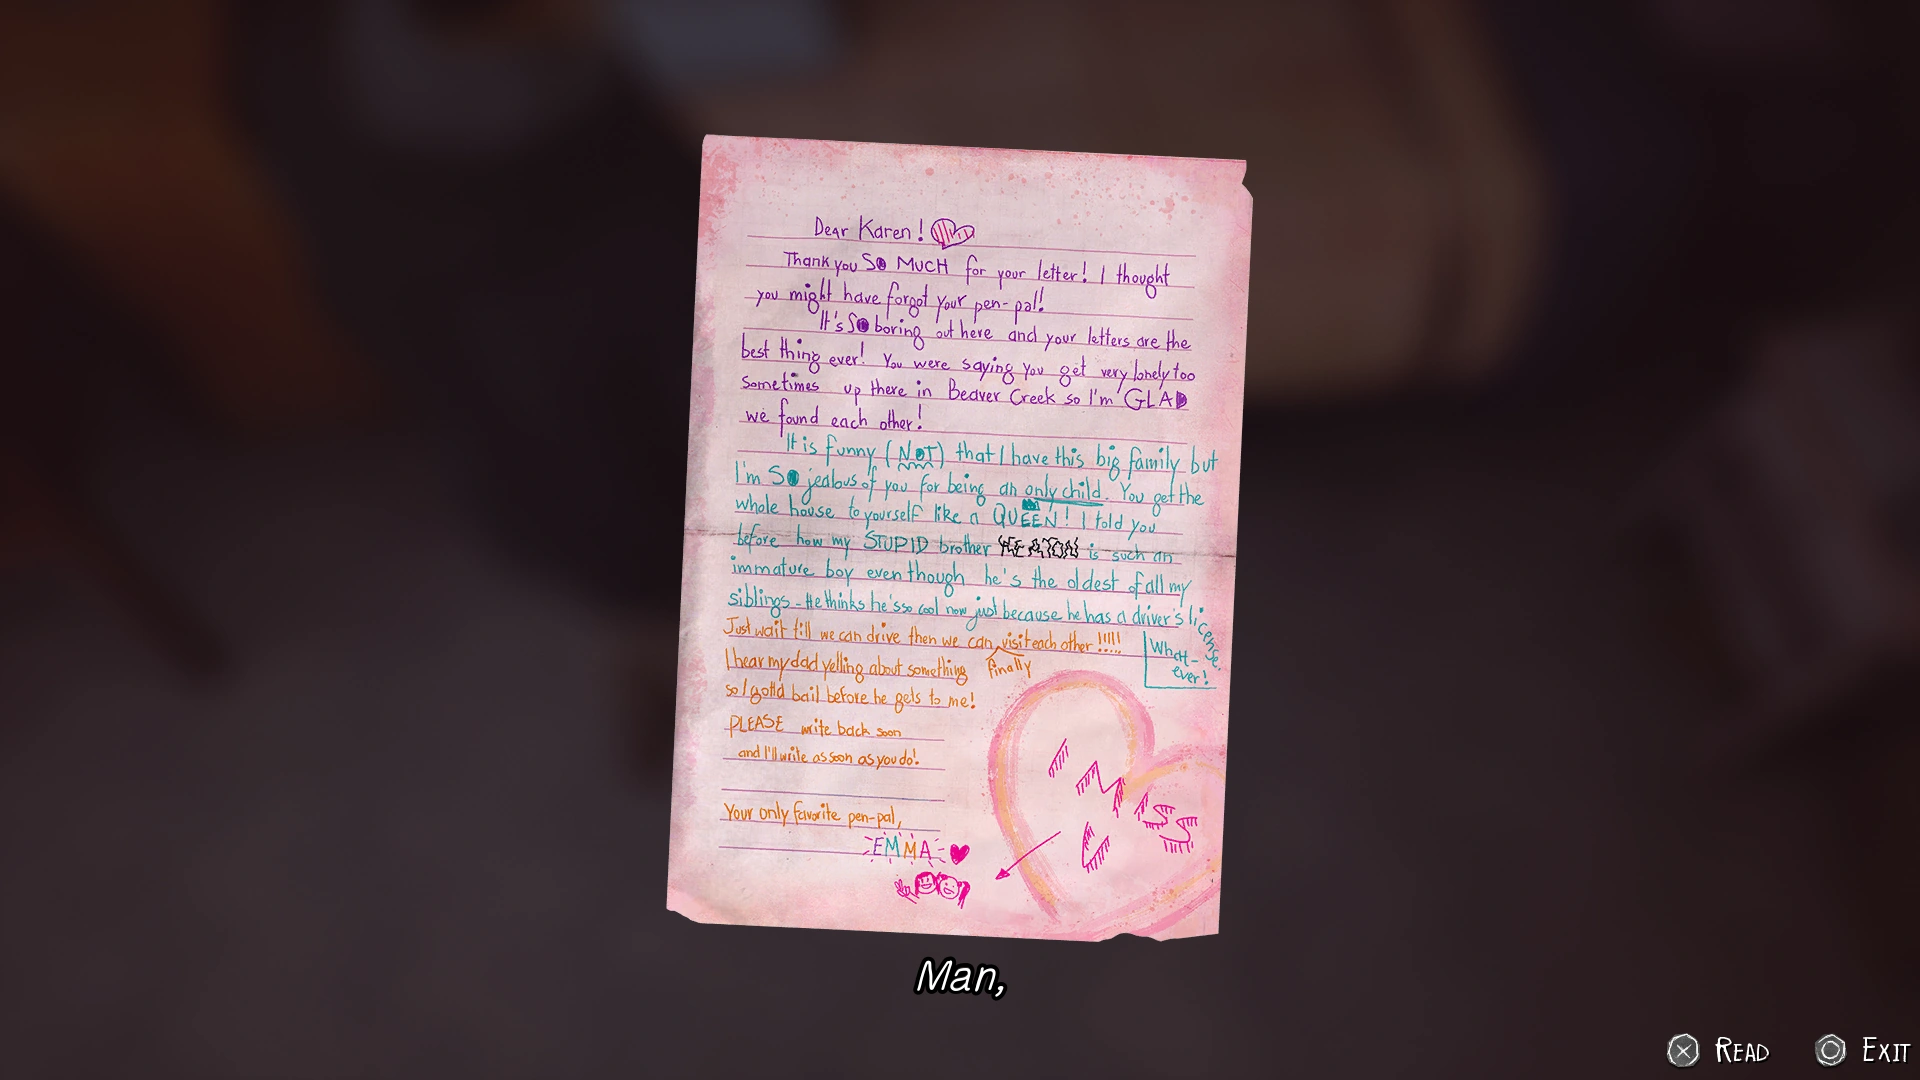 Dear Karen!
Thank you SO MUCH for your letter! I thought
you might have forgot your pen-pal!
It's SO boring out here and your letters are the
best thing ever! You were saying you get very lonely too
sometimes up there in Beaver Creek so I'm GLAD
we found each other!
It is funny (NOT) that I have this big family but
I'm SO jealous of you for being an only child. You get the
whole house to yourself like a QUEEN! I told you
before how my STUPID brother KEATON is such an
immature boy even though he's the oldest of all my
siblings - He thinks he's so cool now just because he has a driver's license.
What-
ever!
Just wait till we can drive then we can visit each other!!!!!
finally
I hear my dad yelling about something
so I gotta bail before he gets to me!
PLEASE write back soon
and I'll write as soon as you do!
Your only favorite pen-pal,
EMMA
I
MISS
U
Man,
READ
EXIT